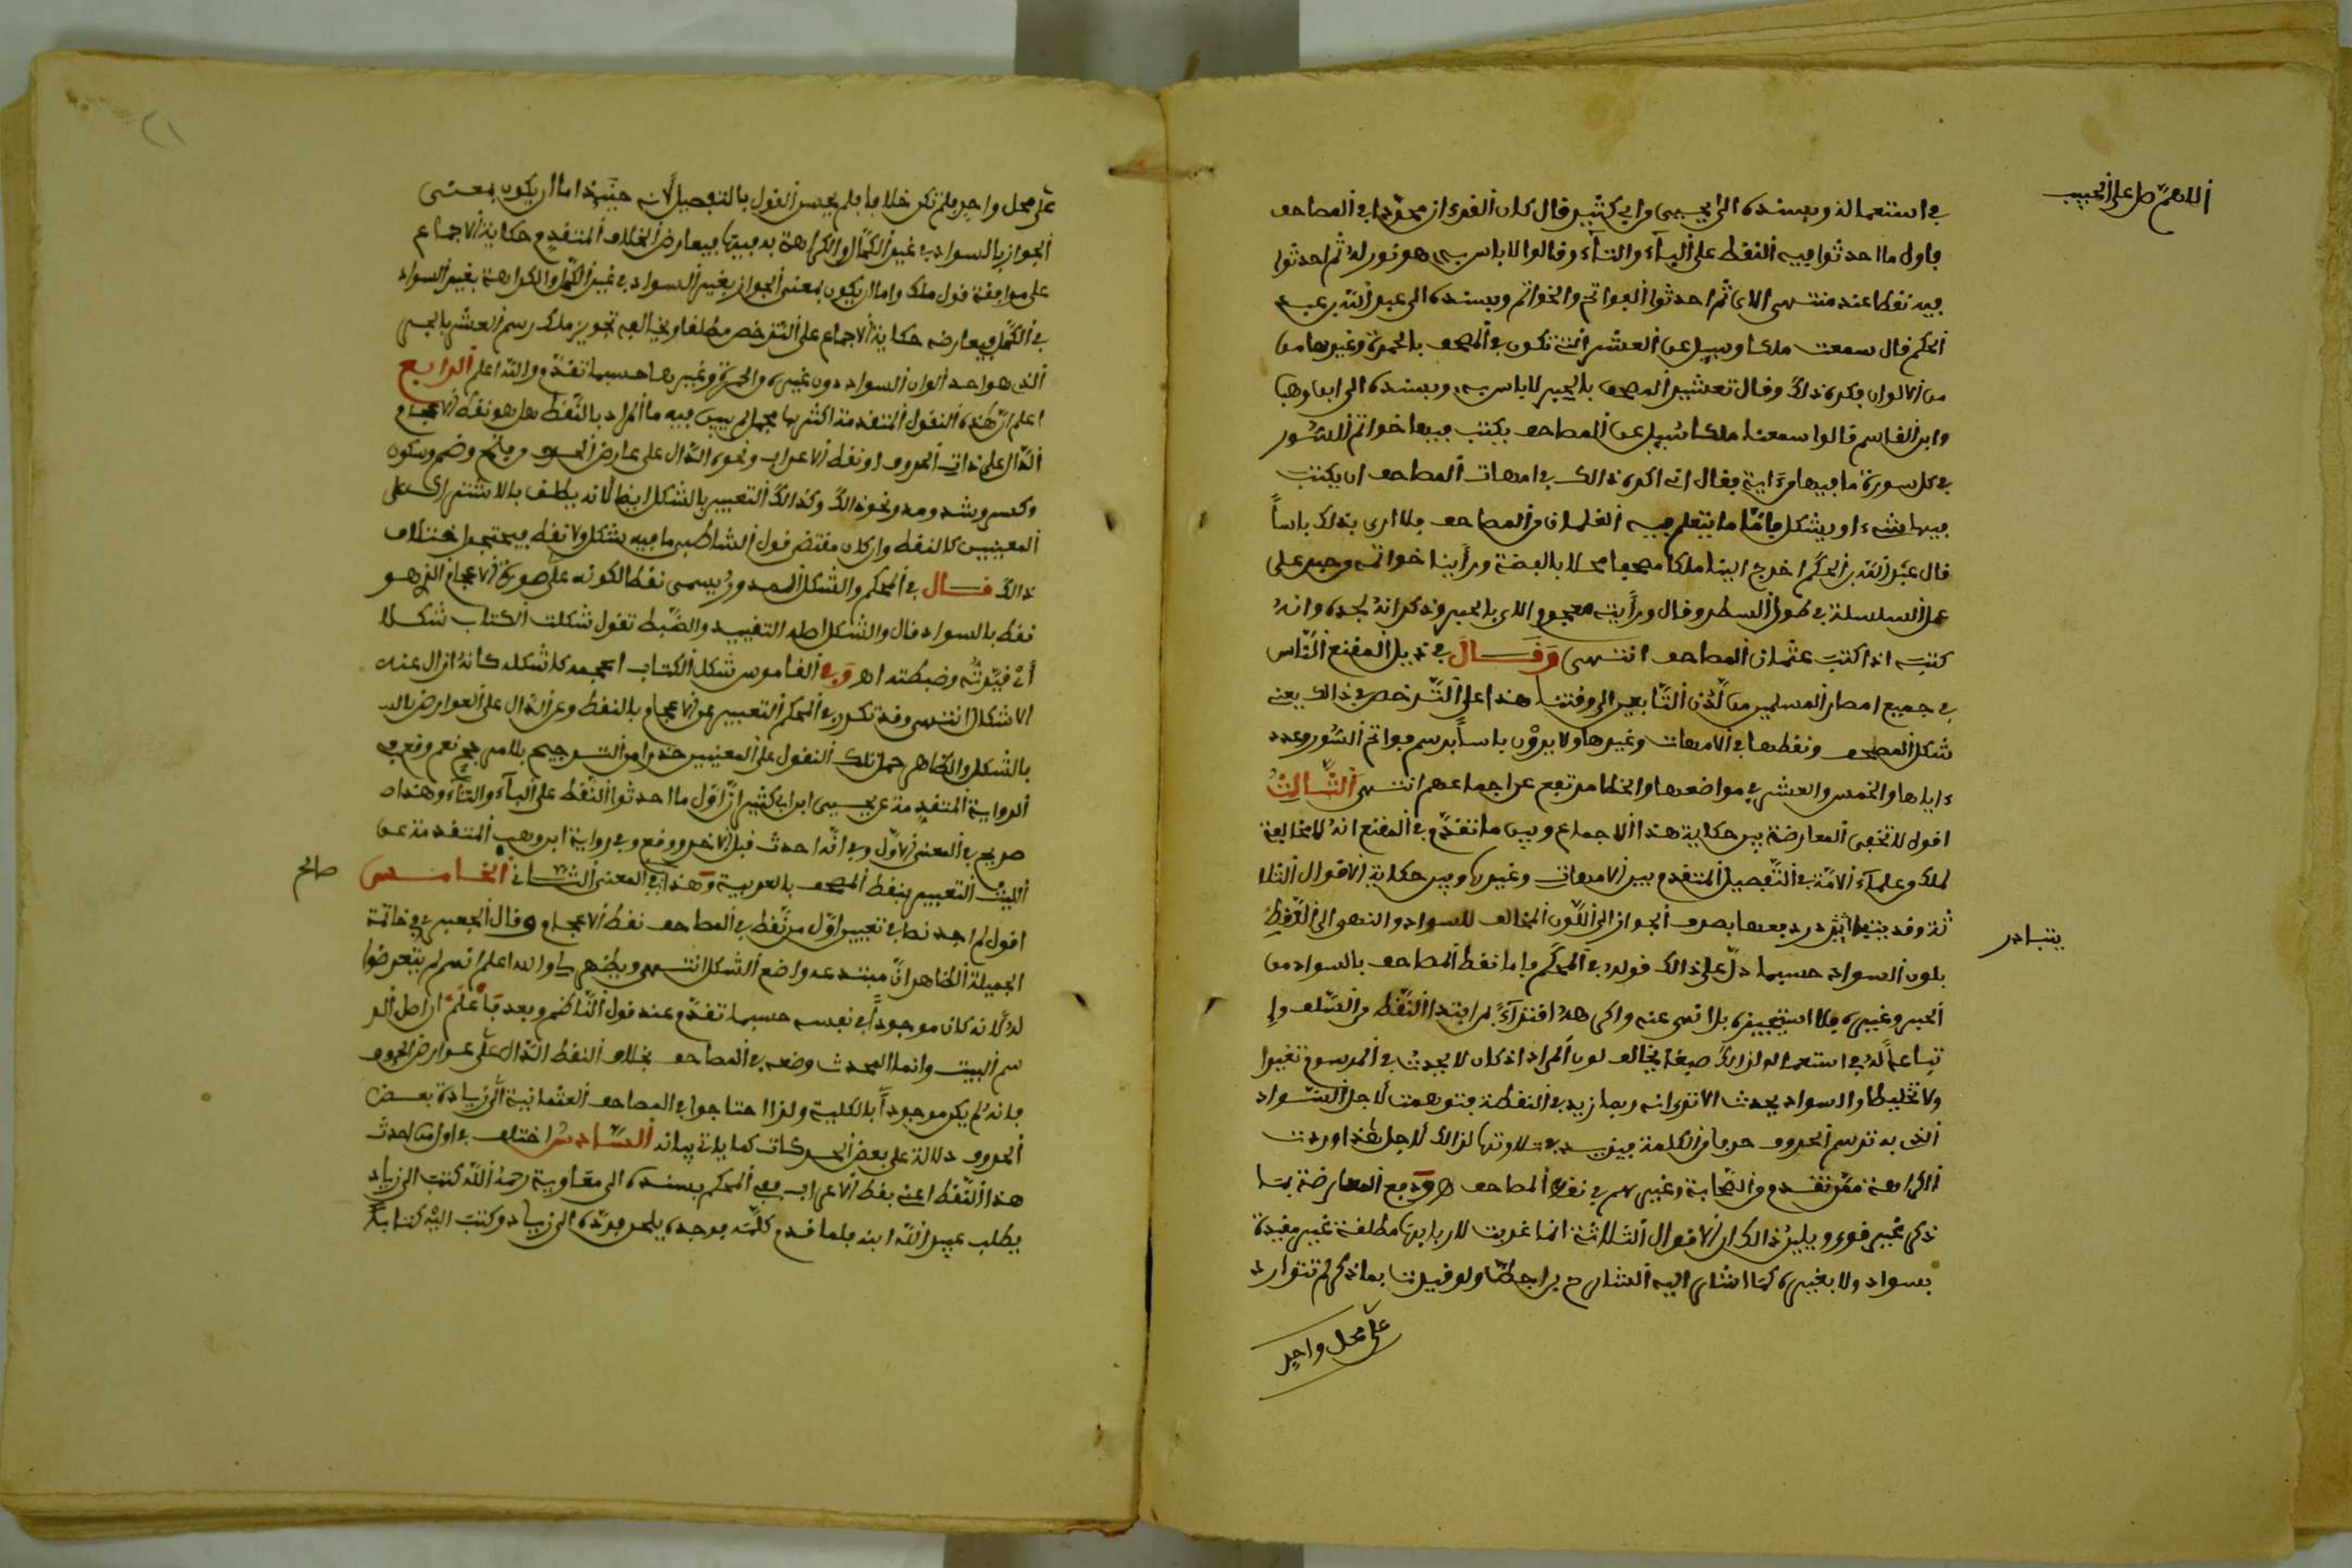 اللهم صل على الحبيب
في استعماله وبسنده الى يحيى بن ابي كثير قال كان القرءان مجردا في المصاحف
فاول ما احدثوا فيه النقط على اليآء والتآء وقالوا لا باس به هو نور له ثم احدثوا
فيه نقطا عند منتهى الاي ثم احدثوا الفواتح والخواتم وبسنده الى عبد الله بن عبد
الحكم قال سمعت ملكا وسيل عن العشر التي تكون في المصحف بالحمرة وغيرها من
من الالوان فكره ذالك وقال تعشير المصحف بالحبر لا باس به وبسنده الى ابن وهب
وابن القاسم قالوا سمعنا ملكا سُيل عن المصاحف يكتب فيها خواتم السُّور
في كل سورة ما فيها من ءاية فقال اني اكره ذالك في امهات المصاحف ان يكتب
فيها شيء او يشكل فامّا ما يتعلم فيه الغلمان من المصاحف فلا ارى بذلك باساً
قال عبد الله بن الحكم اخرج الينا ملكا مصحفا محلا بالفضة ورأينا خواتمه وحبره على
عمل السلسلة في طول السطر وقال ورأيته معجوم الاي بالحبر وذكر انه لجده وانه
كتبه اذ اكتب عثمان المصاحف انتهى وَقَـــالَ في ذيل المقنع النّاس
في جميع امصار المسلمين من لَّدُن التّابعين الى وقتنا هذا على التّرخص في ذالك يعني
شكل المصحف ونقطها في الامهات وغيرها ولا يروْن باساً برسم فواتح السُّور وعدد
ءاياها والخمس والعشر في مواضعها والخطا مرتفع عن اجماعهم انتهى الثَّـالِثُ
اقول لا تخفى المعارضة بين حكاية هذا الاجماع وبين ما تقدّم في المقنع انه لا مخالفة
لملك وعلمآء الامّة في التّفصيل المتقدم بين الامهات وغيرها وبين حكاية الاقوال الثلا
يتبادر
ثة وقد دفعها بصرف الجواز الى اللّون المخالف للسواد والنهي الى النّقطِ
بلون السواد حسبما دلّ على ذالك قوله في المحكَم فاما نقط المصاحف بالسواد من
الحبر وغيره فلا استجيزه بل انهى عنه واكرهه اقتدآءً بمن ابتدا النّقط من السّلف واِ
تباعاً له في استعماله لذالك صبغا يخالف لون المراد اذ كان لا يحدثُ في المرسوم تغييرا
ولا تخليطا والسواد يحدث الا ترى انه ربما زيد في النقطة فتوهمت لاجل السّواد
الذي به ترسم الحروف حرفا من الكلمة فيزيد في تلاوتها لذالك لاجل هذا وردت
الكراهة ممّن تقدم من الصّحابة وغيرهم في نقط المصاحف اهـ ودفع المعارضة بما
ذكر غير قوي ويلين ذالك ان الاقوال الثلاثة انما غربت لاربابها مطلقة غير مقيدة
بسواد ولا بغيره كما اشار اليه الشارح ولو قيدت بما ذكر لم تتوارد
على محل واحد
على محل واحد فلم تكن خلافا فلم يحسن القول بالتفصيل لانه حينيذ اما ان يكون بمعنى
الجواز بالسواد في غير الكمّل والكراهة به فيها فيعارض الخلاف المتقدم حكاية الاجماع
على موافقة قول ملك واما ان يكون بمعنى الجواز بغير السواد في غير الكمّل والكراهة بغير السواد
في الكمّل فيعارضه حكاية الاجماع على التّرخص مطلقا ويخالفه تجويز ملك رسم العشر بالحبر
الذي هو احد الوان السواد دون غيره والحمرة وغيرها حسبما تقدّم والله اعلم الرابـع
اعلم انّ هذه النقول المتقدمة اكثرها مجمل لم يبين فيه ما المراد بالنّقط هل هو نقط الاعجام
الدّال على ذات الحروف او نقط الاعراب ونحوه الدّال على عارض الحرف من فتح وضم وسكون
وكسر وشد ومد ونحو ذالك وكذالك التعبير بالشكل ايضا لانه يطلق بالاشتراك على
المعنيين كالنقط وان كان مقتضى قول الشاطبي ما فيه شكل ولا نقط فيحتجرا ختلاف
ذالك قـــال في المحكم والشكل المدور يسمى نقطا لكونه على صورة الاعجام الذي هو
نقط بالسواد قال والشكل اصله التقييد والضّبط تقول شكلت الكتاب شكلا
أي قيّدتُّه وضبطته اهـ وَفي القاموس شكل الكتاب اعجمه كاشكله كانه ازال عنه
الاشكال انتهى وقد تكرر في المحكم التعبير عن الاعجام بالنقط وعن الدال على العوارض بالـ
بالشكل والظاهر حمل تلك النقول على المعنيين حذرا من الترجيح بلا مرجح نعم وقع في
الرواية المتقدمة عن يحيى ابن ابي كثير انّ اوّل ما احدثوا النّقط على اليآء والتآء وهذا
صريح في المعنى الاوّل وفي انّه احدث قبل الاخر ووقع في رواية ابن وهب المتقدمة عن
صالح
الليث التعبير بنقط المصحف بالعربية وَهذا في المعنى الثاني الخامـــس
اقول لم اجد نصا في تعيين اوّل من نّقط في المصاحف نقط الاعجام وقال الجعبري في خاتمة
الجميلة الظاهر انّ مبتدعه واضع الشكل انتهى ويظهر لي والله اعلم انهم لم يتعرضوا
له لانه كان موجوداً في نفسه حسبما تقدّم عند قول النّاظم وبعد فاعلم ان اصل الر
سم البيت وانما المحدث وضعه في المصاحف بخلاف النقط الدّال على عوارض الحروف
فانه لم يكن موجوداً بالكلية ولذا احتاجوا في المصاحف العثمانية الى زيادة بعـض
الحروف دلالة على بعض الحركات كما ياتي بيانه السَّـادسُ اختلف في اول من احدث
هذا النّقط اعني نقط الاعراب ففي المحكم بسنده الى معاوية رحمهُ اللّه كتب الى زياد
يطلب عبيد اللّه ابنه فلما قدم كلّمه فوجده يلحن فردّه الى زياد وكتب اليْه كتاباً